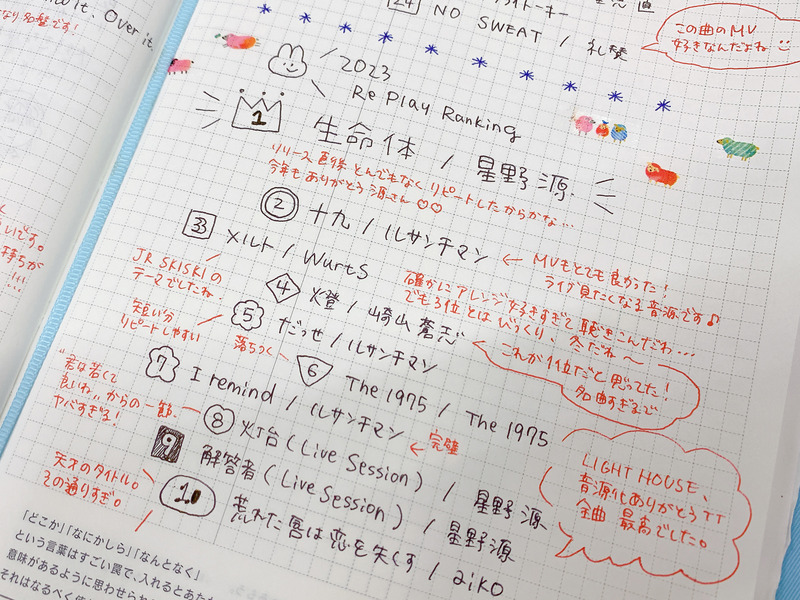 it. Over it.
名盤です!
24
NO SWEAT / 礼賛
この曲のMV
好きなんだよね
2023
Re Play Ranking
1 生命体 / 星野 源
リリース直後 とんでもなく リピートしたからかな…
今年も ありがとう 源さん♡♡
② 十九 / ルサンチマン
← MVもとても良かった!
ライブ見たくなる音源です♪
3 メルト / WurtS
JR SKISKIの
テーマでしたね
確かにアレンジ好きすぎて 聴きこんだわ…
でも3位とは びっくり、冬だね〜
4 燈 / 崎山 蒼志
これが1位だと思ってた!
名曲すぎるで
5 だっせ / ルサンチマン
短い分
リピートしやすい
6 The 1975 / The 1975
落ちつく
7 I remind / ルサンチマン
← 完璧
"君は若くて
良いね"からの一節、
ヤバすぎる!
8 灯台 (Live Session) / 星野 源
9 解答者 (Live Session) / 星野 源
LIGHT HOUSE、
音源化ありがとうTT
全曲 最高でした。
10 荒れた唇は恋を失くす / aiko
天才のタイトル。
その通りすぎ。
いです。
持ちが
!!!
「どこか」「なにかしら」「なんとなく」
という言葉はすごい罠で、入れるとあた
意味があるように思わせられ
それはなるべく